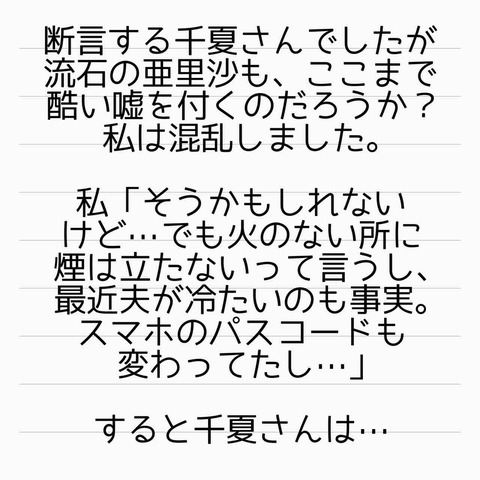 断言する千夏さんでしたが
流石の亜里沙も、ここまで
酷い嘘を付くのだろうか？
私は混乱しました。
私「そうかもしれない
けど…でも火のない所に
煙は立たないって言うし、
最近夫が冷たいのも事実。
スマホのパスコードも
変わってたし…」
すると千夏さんは…